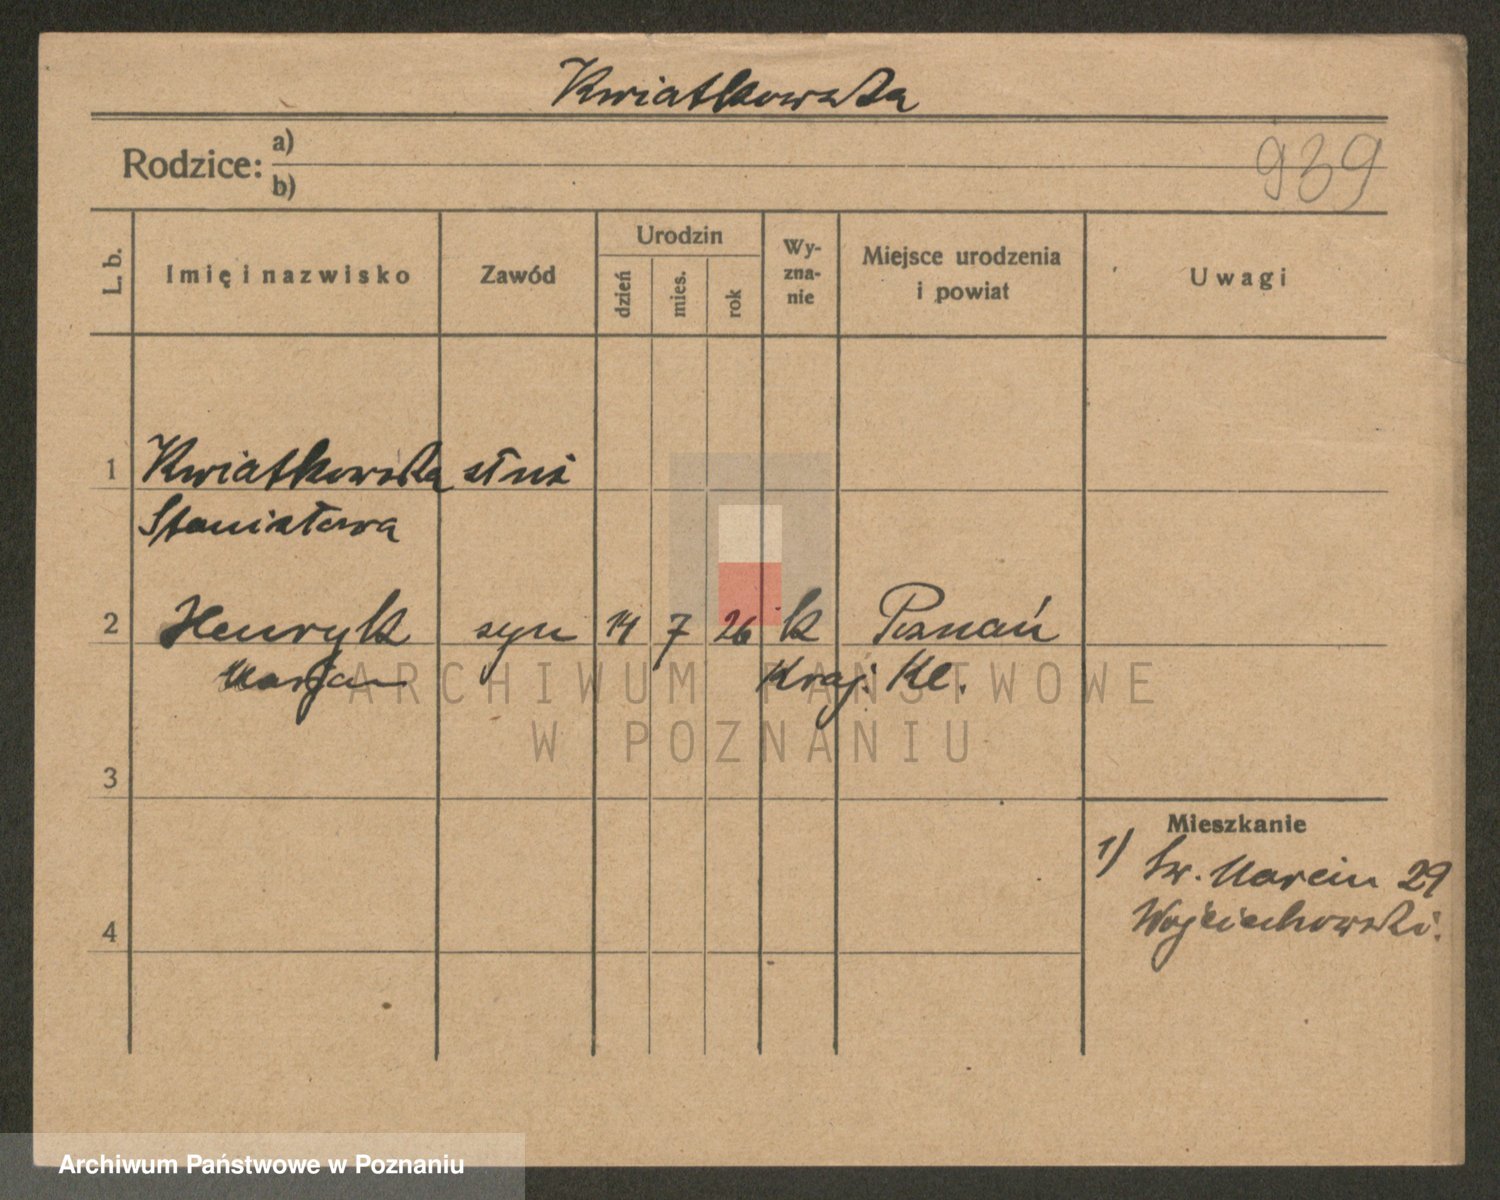 Kwiatkowska
Rodzice: a)
b)
939
L. b.
Imię i nazwisko
Zawód
Urodzin
dzień
mies.
rok
Wy-
zna-
nie
Miejsce urodzenia
i powiat
Uwagi
1 Kwiatkowska służ
Stanisława
2 Henryk syn 14 7 26 k Poznań
Marjan Kraj. Kl.
ARCHIWUM PAŃSTWOWE
W POZNANIU
3
Mieszkanie
1) Św. Marcin 29
Wojciechowski.
4
Archiwum Państwowe w Poznaniu